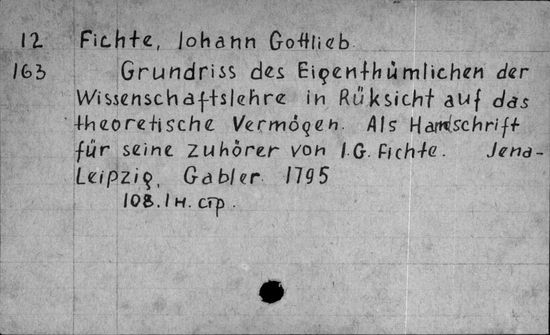 12 Fichte, Iohann Gottlieb.
163 Grundriss des Eigenthümlichen der
Wissenschaftslehre in Rüksicht auf das
theoretische Vermögen. Als Handschrift
für seine Zuhörer von I.G. Fichte. Jena-
Leipzig, Gabler. 1795
108.1 н. стр.